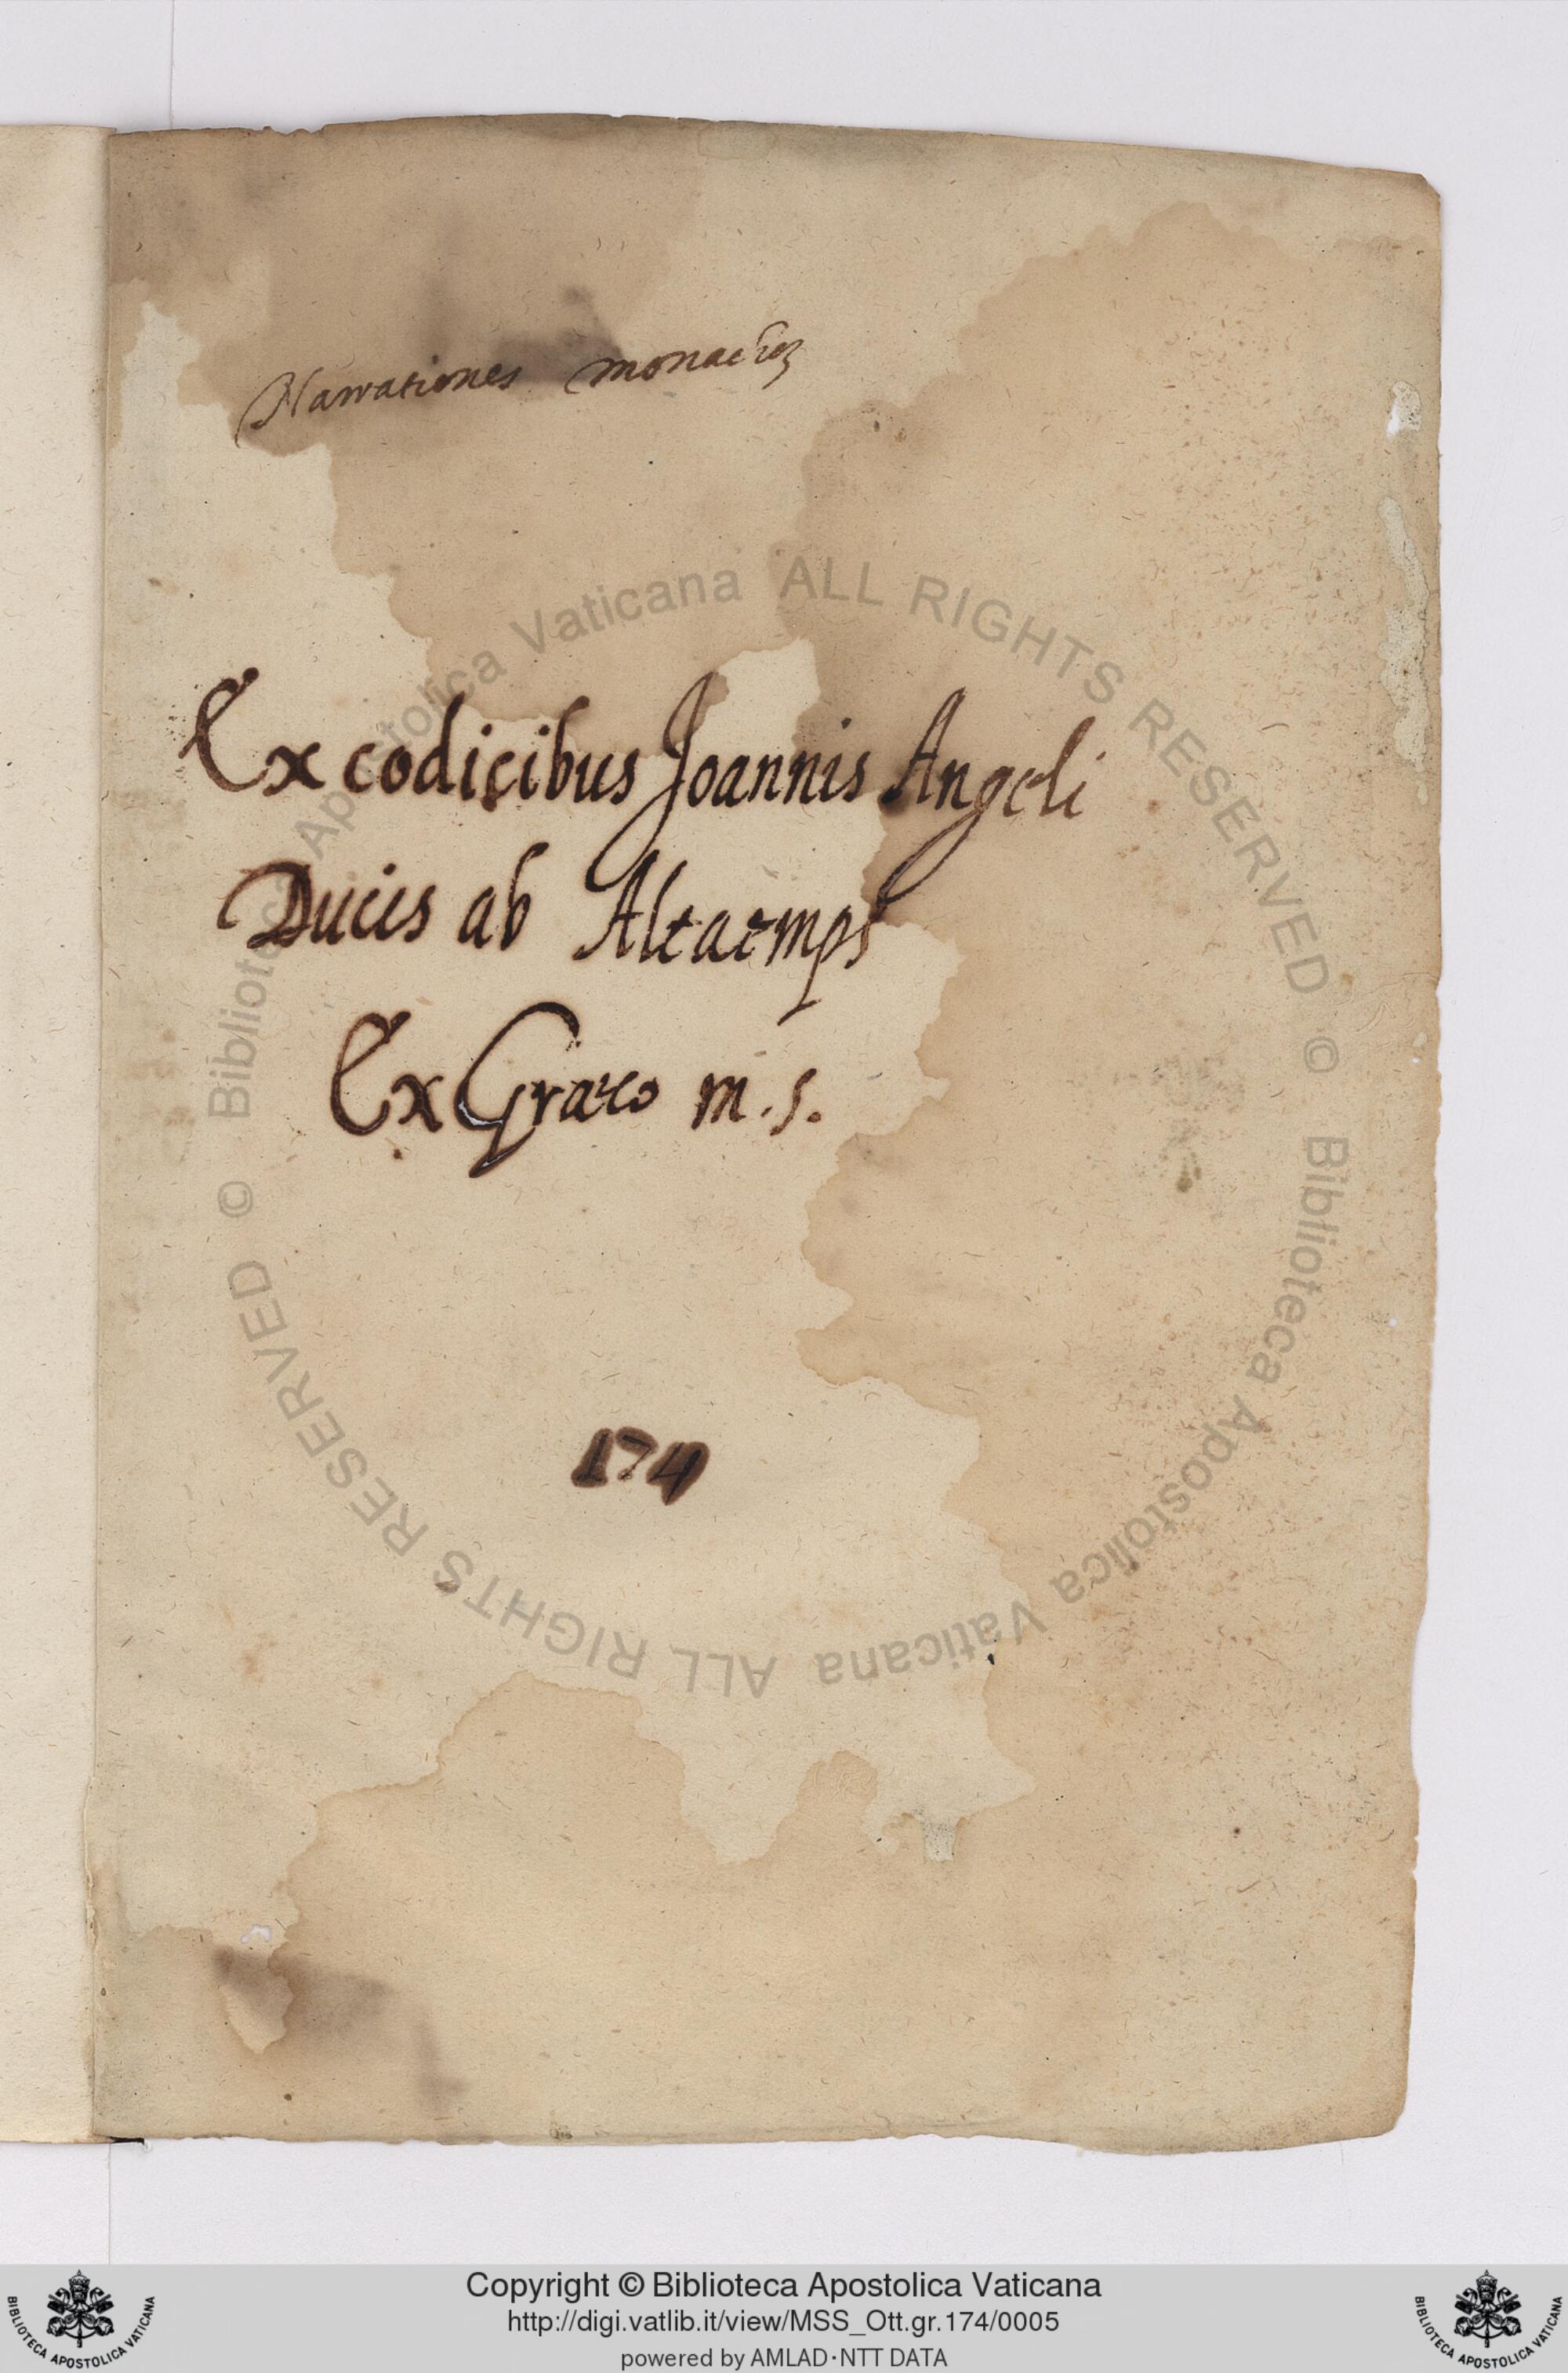 Narrationes monachoꝝ
Ex codicibus Joannis Angeli
Ducis ab Altaemps
Ex Græco m.s.
174
© Biblioteca Apostolica Vaticana ALL RIGHTS RESERVED
© Biblioteca Apostolica Vaticana ALL RIGHTS RESERVED
Copyright © Biblioteca Apostolica Vaticana
http://digi.vatlib.it/view/MSS_Ott.gr.174/0005
powered by AMLAD·NTT DATA
BIBLIOTECA APOSTOLICA VATICANA
BIBLIOTECA APOSTOLICA VATICANA